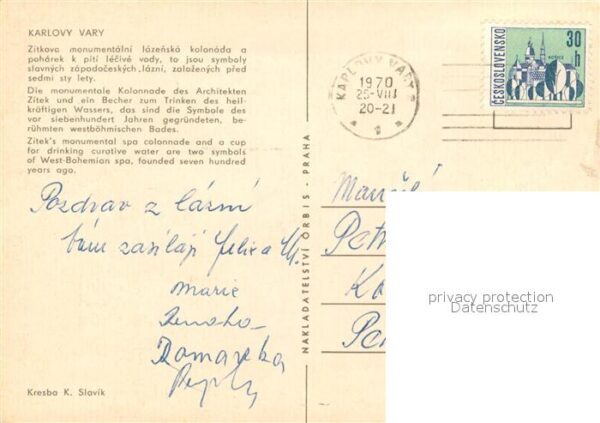 KARLOVY VARY
Zítkova monumentální lázeňská kolonáda a
pohárek k pití léčivé vody, to jsou symboly
slavných západočeských lázní, založených před
sedmi sty lety.
Die monumentale Kolonnade des Architekten
Zítek und ein Becher zum Trinken des heil-
kräftigen Wassers, das sind die Symbole des
vor siebenhundert Jahren gegründeten, be-
rühmten westböhmischen Bades.
Zítek's monumental spa colonnade and a cup
for drinking curative water are two symbols
of West-Bohemian spa, founded seven hundred
years ago.
Pozdrav z lázní
Vám zasílají
Marie
Kresba K. Slavík
NAKLADATELSTVÍ ORBIS - PRAHA
KARLOVY VARY
1970
25-VIII
20-21
ČESKOSLOVENSKO
30
h
KOŠICE
privacy protection
Datenschutz